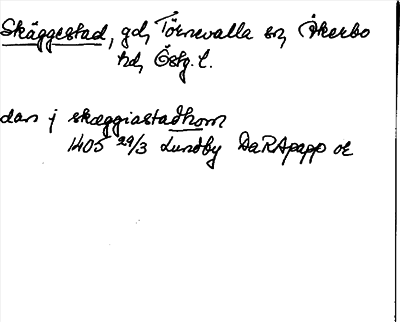 Skäggestad, gd, Törnevalla sn, Åkerbo
hd, Östg. l.
dan j skæggiastadhom
1405 29/3 Lundby DaRApapp or